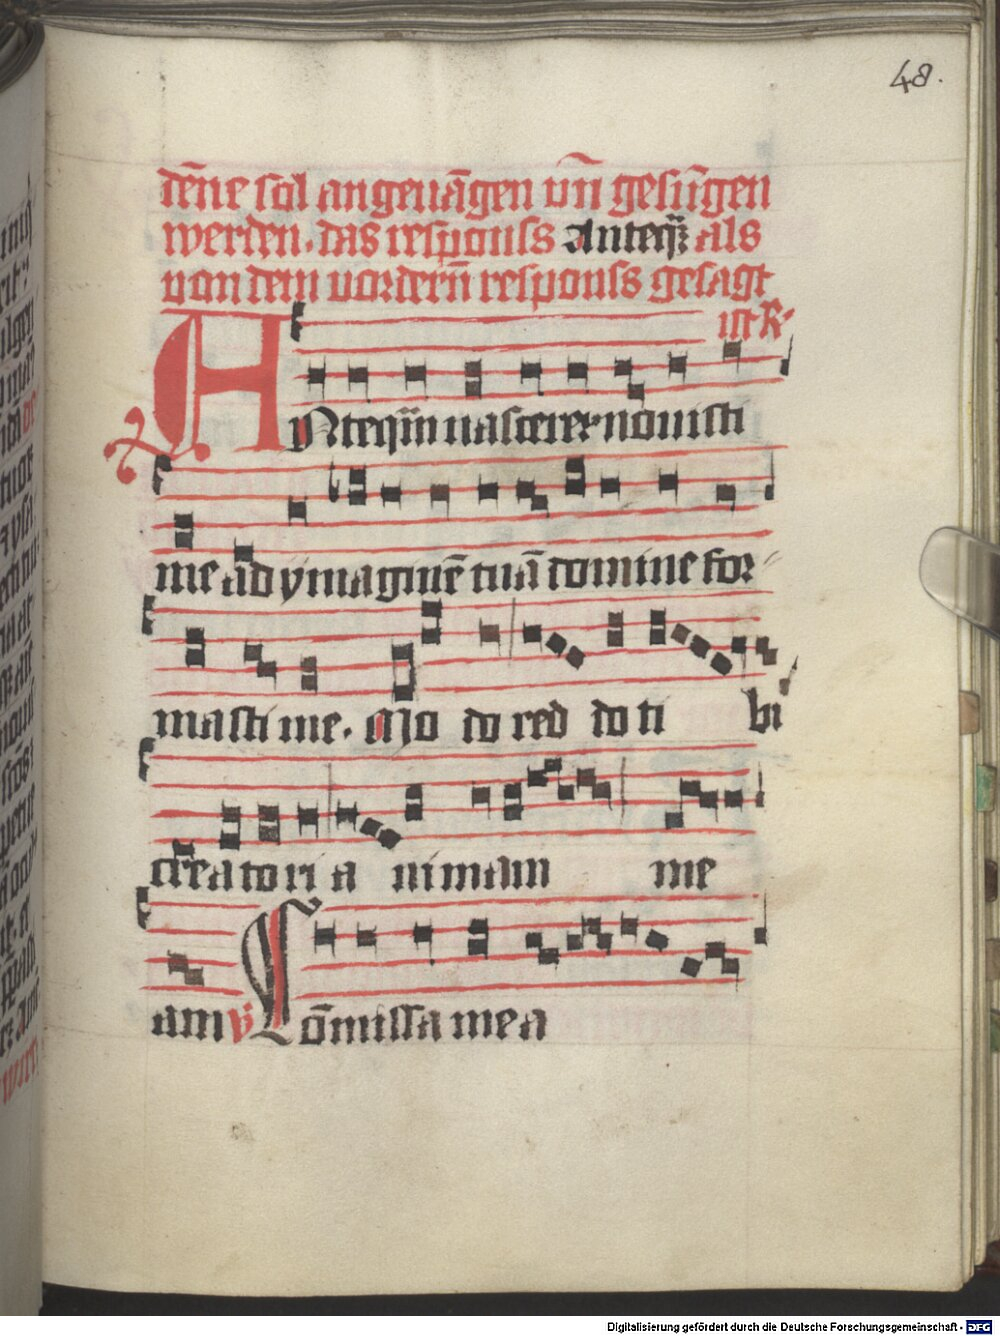 48.
tēne sol angeuāgen vn̄ gesūgen
werden. das respons Anteq̄ʒ als
von dem vordern̄ respons gesagt
ist R.
ANteq̄m nascerer nouisti
me ad ymaginē tuā domine for
masti me. Mo do red do ti bi
creatori a nimam me
am v Cōmissa mea
Digitalisierung gefördert durch die Deutsche Forschungsgemeinschaft - DFG